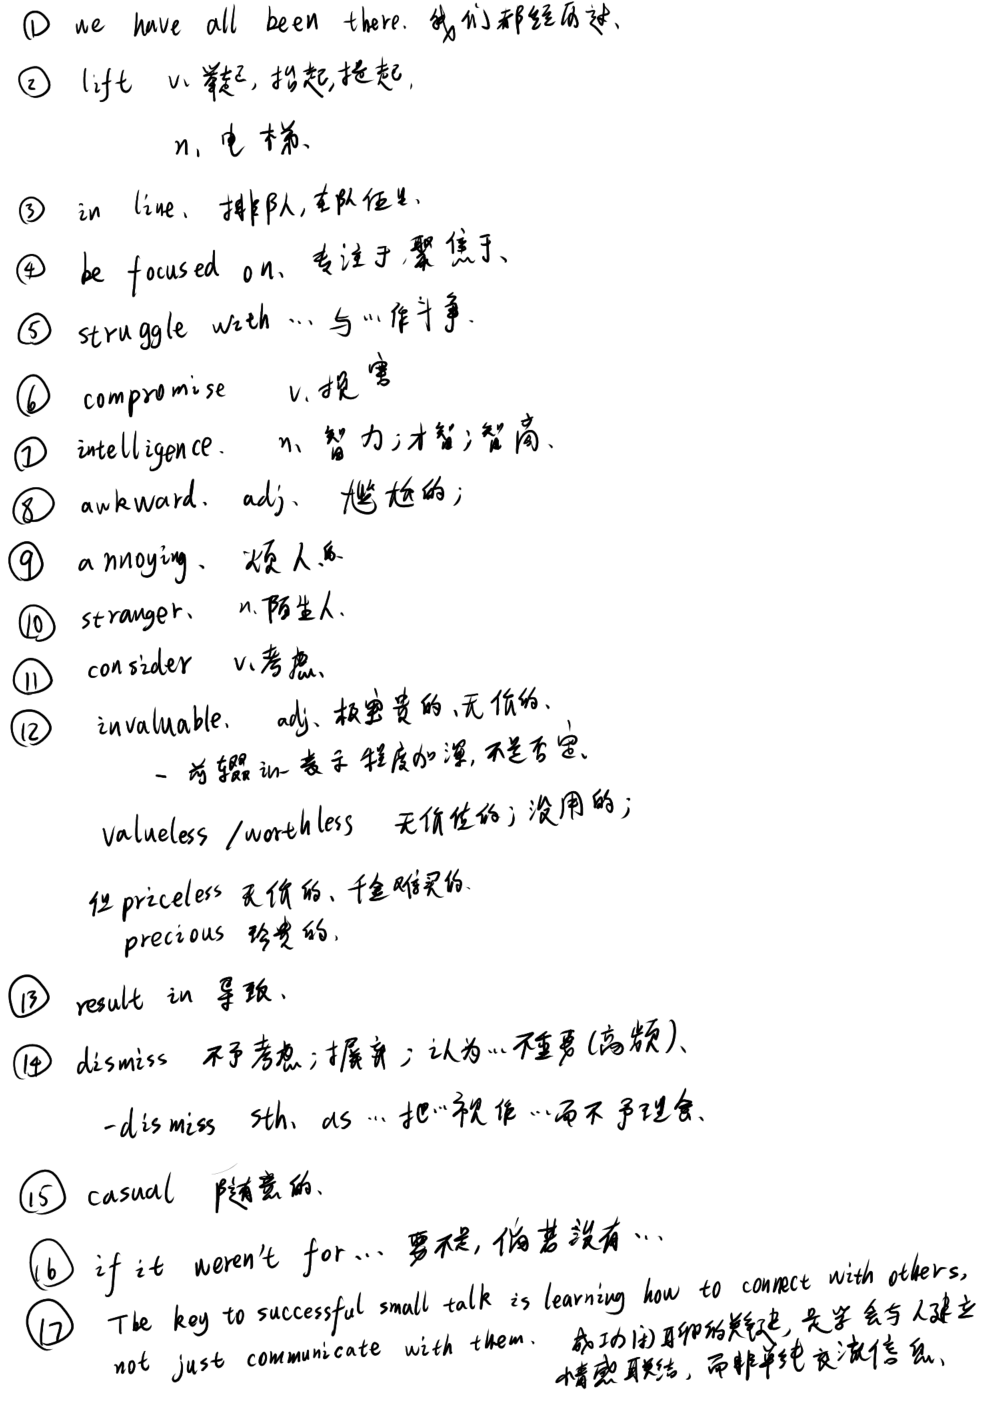 ① we have all been there. 我们都经历过、
② lift v. 举起,抬起,提起,
n. 电梯、
③ in line、排队,在队伍里、
④ be focused on、专注于,聚焦于、
⑤ struggle with … 与…作斗争.
⑥ compromise v. 损害
⑦ intelligence. n. 智力;才智;智商、
⑧ awkward. adj. 尴尬的;
⑨ annoying、烦人的
⑩ stranger、n. 陌生人.
⑪ consider v. 考虑、
⑫ invaluable. adj. 极宝贵的、无价的、
- 前缀 in- 表示程度加深,不是否定、
valueless /worthless 无价值的;没用的;
但 priceless 无价的、千金难买的.
precious 珍贵的.
⑬ result in 导致、
⑭ dismiss 不予考虑;摒弃;认为…不重要(高频)、
-dismiss sth. as … 把…视作…而不予理会、
⑮ casual 随意的、
⑯ if it weren't for … 要不是,倘若没有…
⑰ The key to successful small talk is learning how to connect with others,
not just communicate with them. 成功闲聊的关键,是学会与人建立
情感联结,而非单纯交流信息、